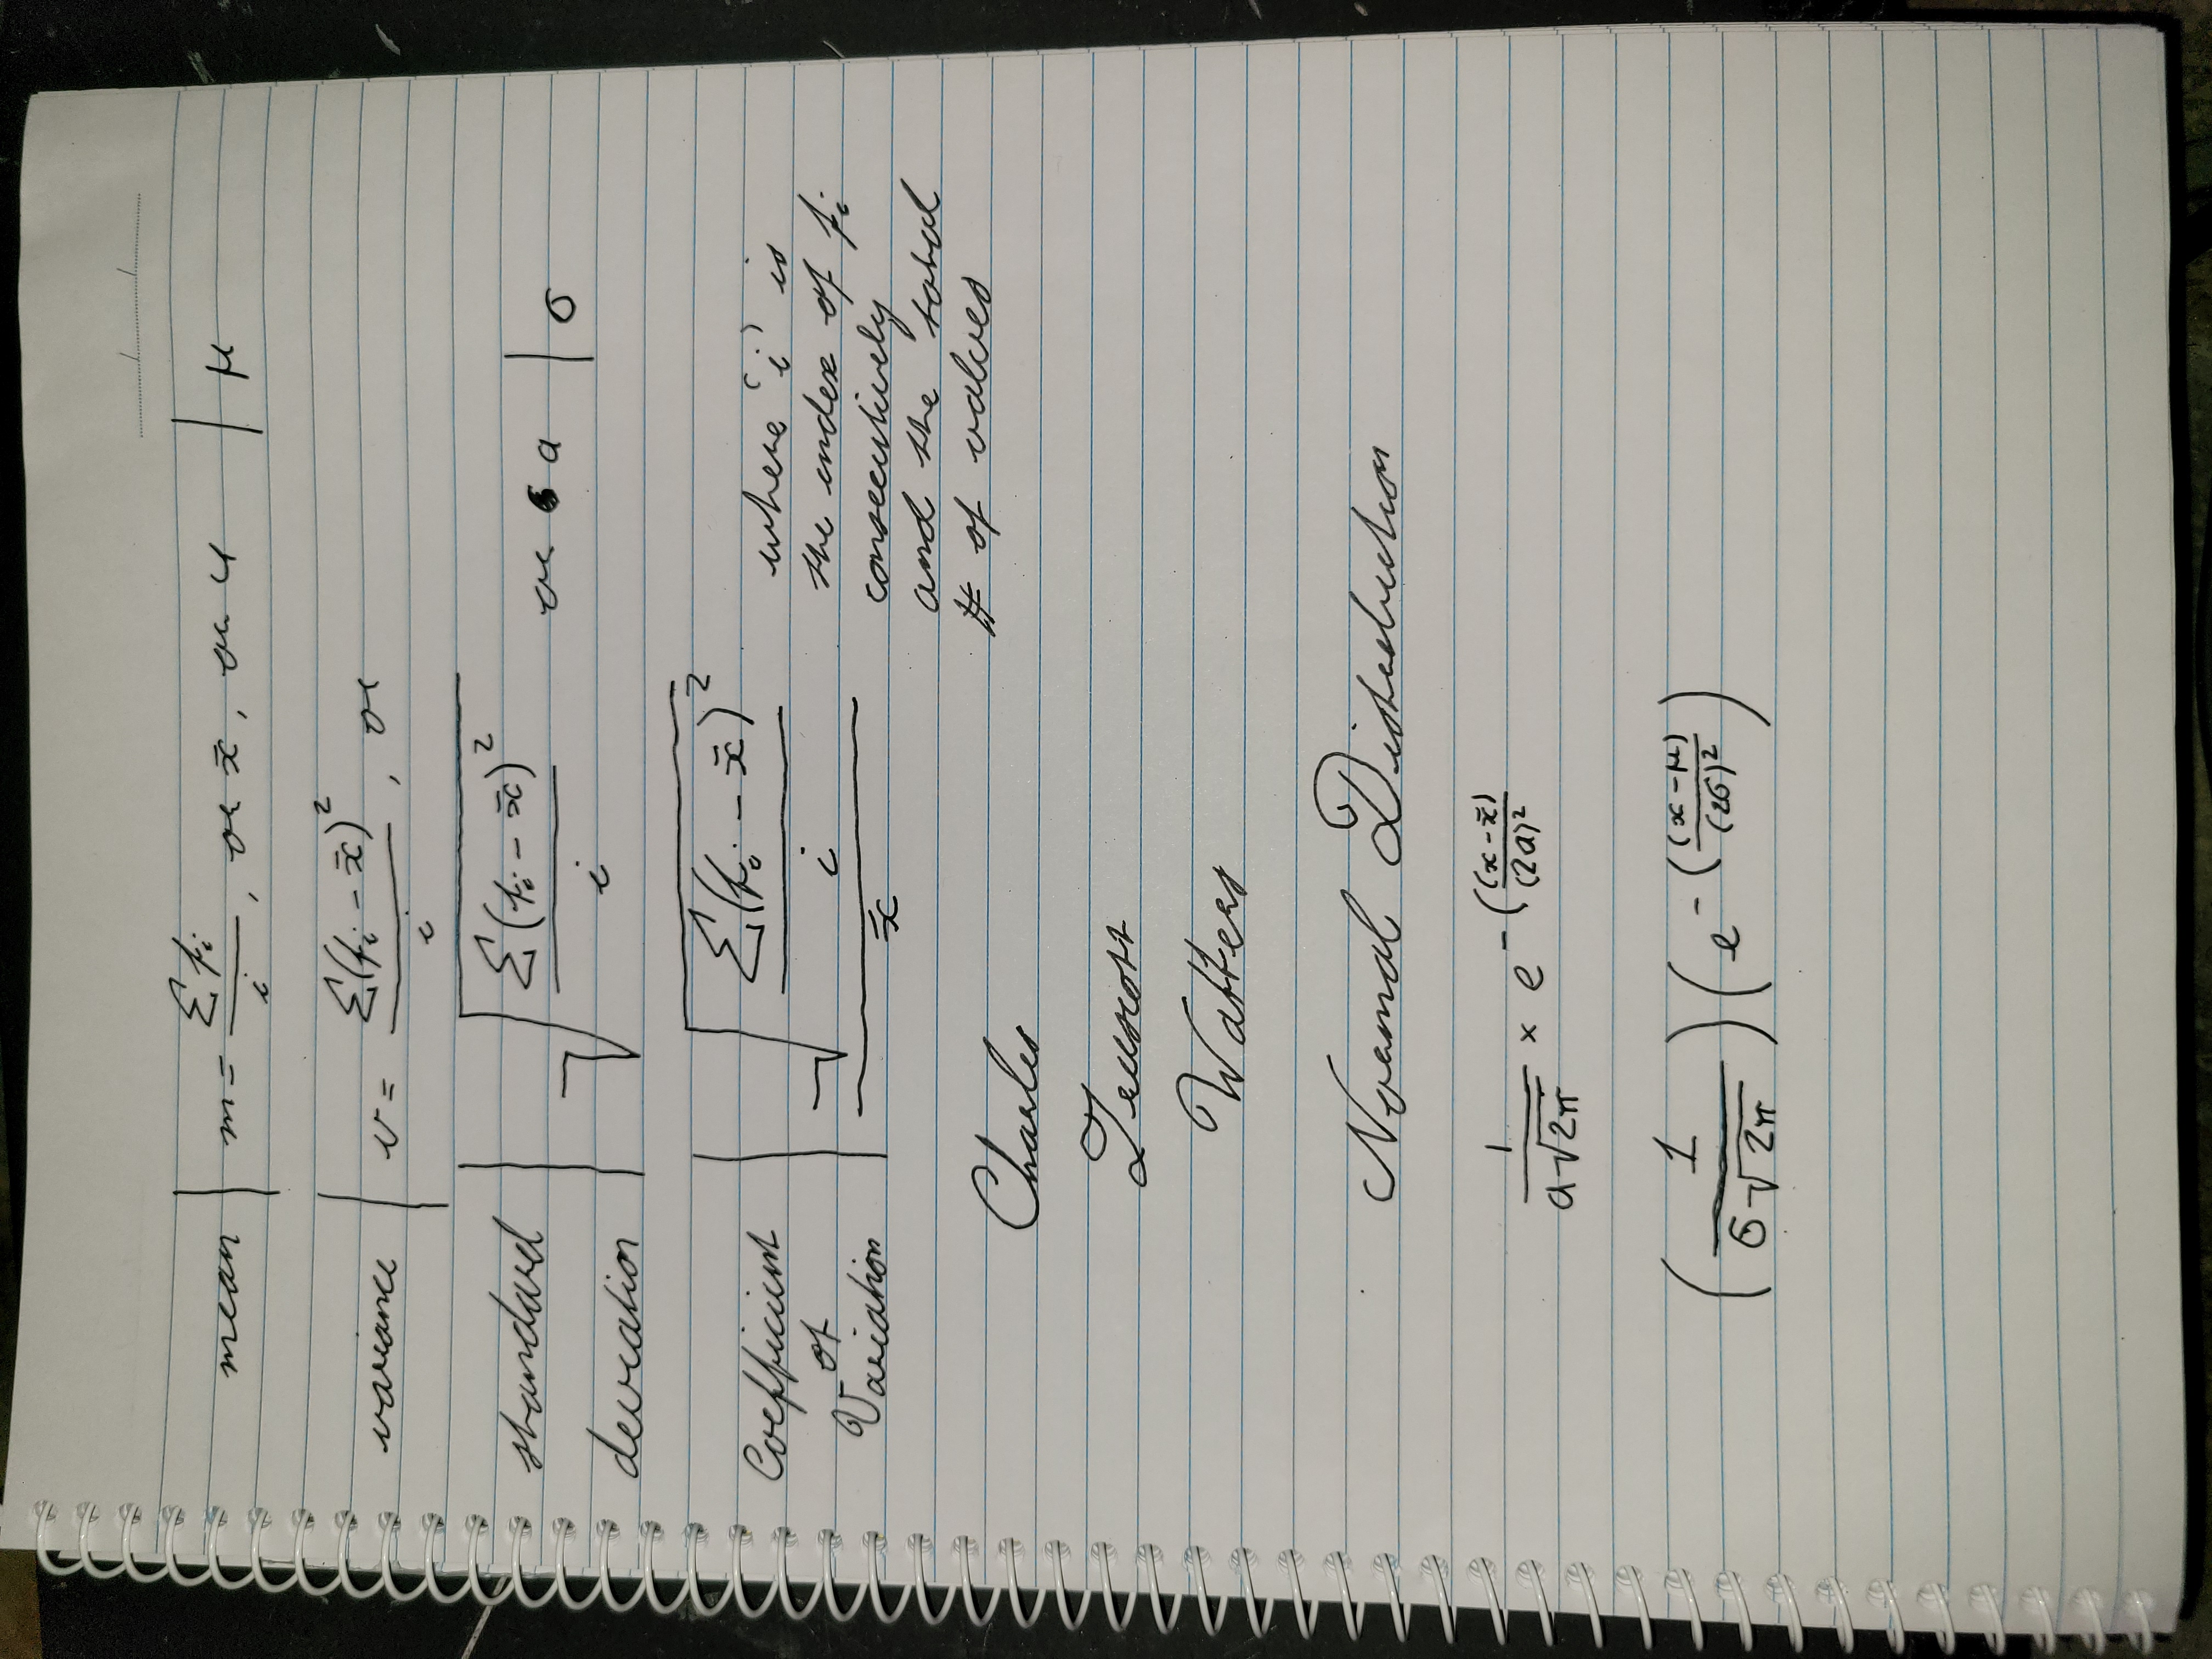 mean | m = Σfi / i , or x̄, or u | μ
variance | v = Σ(fi - x̄)² / i , or
standard deviation | √(Σ(fi - x̄)² / i) or a | σ
Coefficient of Variation | √(Σ(fi - x̄)² / i) / x̄
where 'i' is
the index of fi
consecutively
and the total
# of values
Charles
Truscott
Watters
Normal Distribution
1 / a√2π × e^-(((x - x̄) / (2a)²
(1 / σ√2π)(e^-(((x - μ) / (2σ)²)